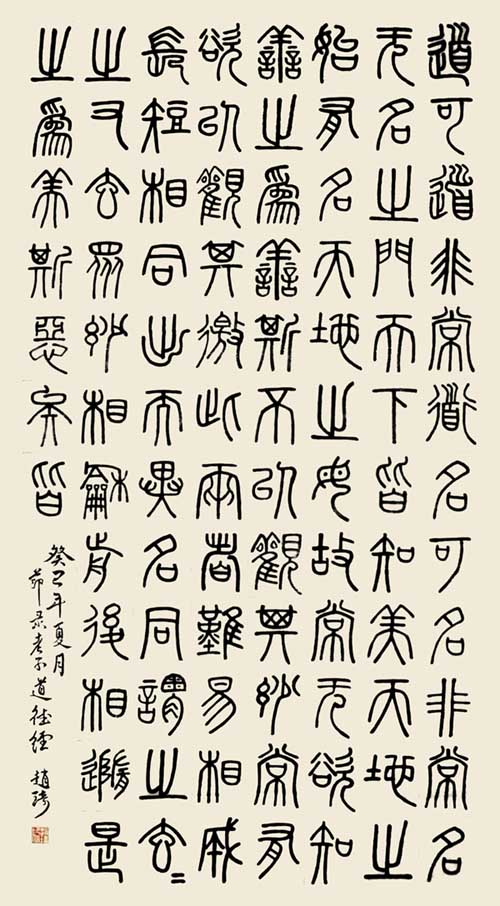 道可道非常道名可名非常名
无名之門而下皆知美天地之
始有名天地之母故常无欲知
善之爲善斯不以觀其妙常有
欲以觀其徼此兩者難易相成
長短相同出而異名同謂之玄=
之又玄眾妙相龢前後相隨是
之爲美斯惡矣皆
癸巳年夏月
節录老子道德經 趙